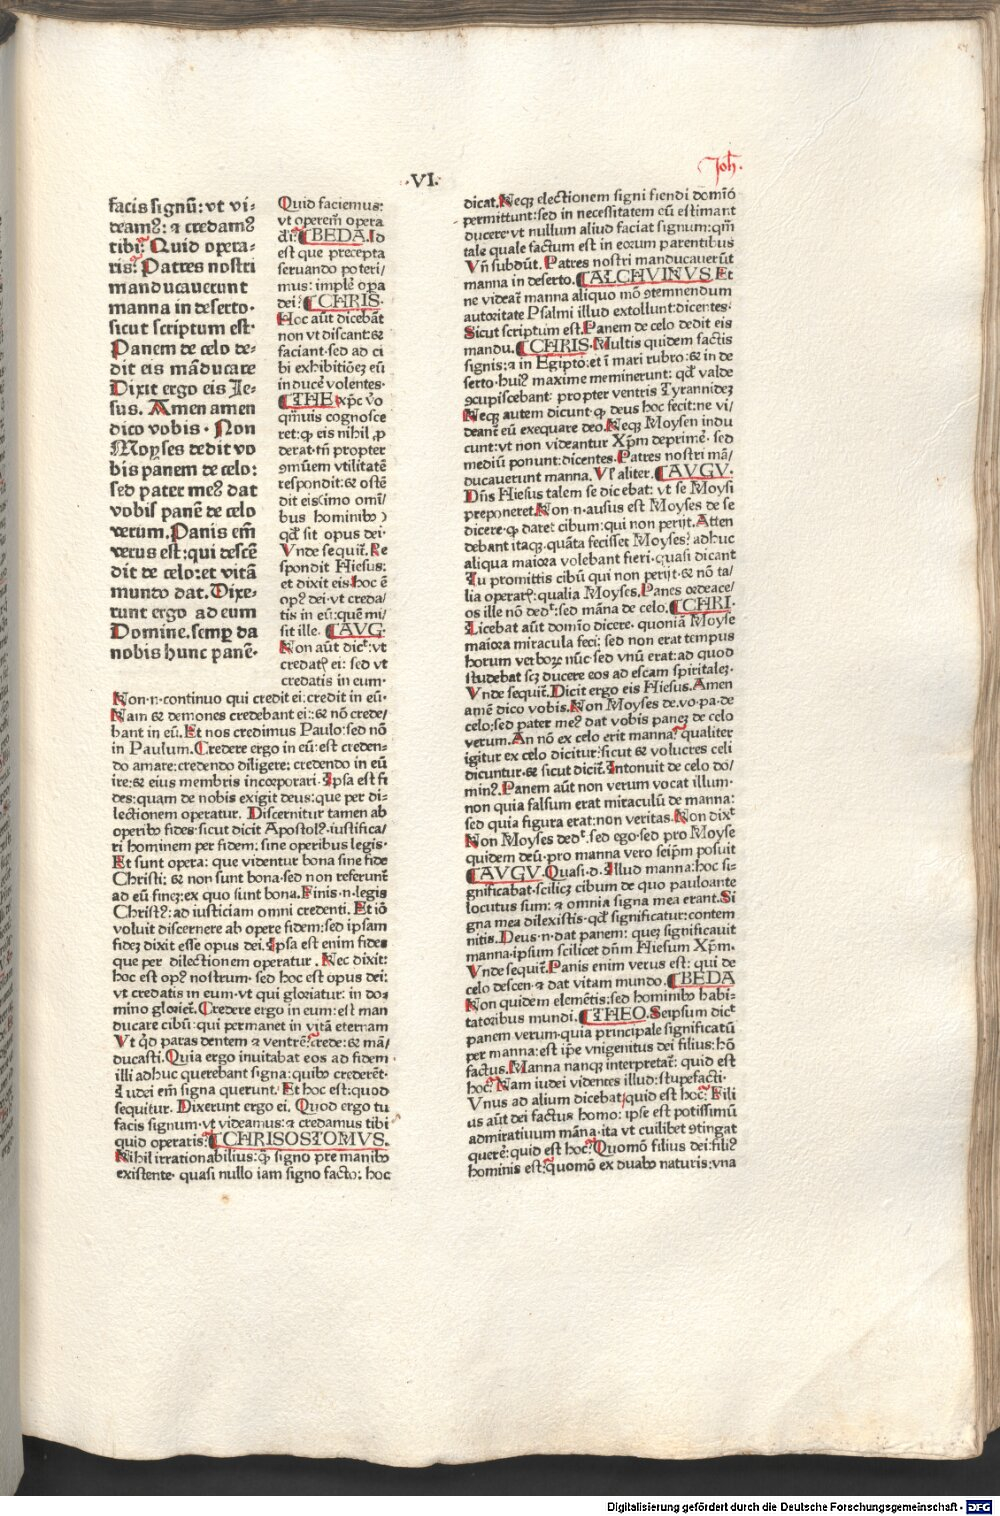 ·VI·
Joh̄.
facis signū: vt vi-
deamꝰ: ⁊ credamꝰ
tibi? Quid opera-
ris? Patres nostri
manducauerunt
manna in deserto·
sicut scriptum est·
Panem de celo de-
dit eis māducare
Dixit ergo eis Je-
sus. Amen amen
dico vobis · Non
Moyses dedit vo
bis panem de celo:
sed pater meꝰ dat
vobis panē de celo
verum. Panis em̄
verus est: qui descē
dit de celo: et vitā
mundo dat. Dixe-
runt ergo ad eum
Domine. semꝑ da
nobis hunc panē·
Quid faciemus:
vt operem̄ opera
di? BEDA. Id
est que precepta
seruando poteri/
mus: implē oꝑa
dei? CHRIS·
Hoc aūt dicebāt
non vt discant: &
faciant· sed ad ci
bi exhibitiōeꝫ eū
inducē volentes·
THE xp̄c v̊o
qm̄uis cognosce
ret: ꝙ eis nihil ꝓ
derat· tn̄ propter
ꝯmūem vtilitatē
respondit: & ostē
dit eis imo omi/
bus hominibꝰ
qd̄ sit opus dei·
Vnde sequit̄. Re
spondit Hiesus:
et dixit eis. hoc ē
opꝰ dei· vt creda/
tis in eū: quē mi/
sit ille. AVG·
Non aūt dic̄: vt
credat̄ ei: sed vt
credatis in eum·
Non· n· continuo qui credit ei: credit in eū·
Nam & demones credebant ei: & nō crede/
bant in eū. Et nos credimus Paulo: sed nō
in Paulum. Credere ergo in eū: est creden-
do amare: credendo diligere: credendo in eū
ire: & eius membris incorporari. Ipsa est fi
des: quam de nobis exigit deus: que per di-
lectionem operatur. Discernitur tamen ab
operibꝰ fides: sicut dicit Apostolꝰ· iustifica/
ri hominem per fidem: sine operibus legis·
Et sunt opera: que videntur bona sine fide
Christi: & non sunt bona· sed non referunt̄
ad eū fineꝫ: ex quo sunt bona. Finis· n· legis
Christꝰ: ad iusticiam omni credenti. Et iō
voluit discernere ab opere fidem: sed ipsam
fideꝫ dixit esse opus dei. Ipsa est enim fides
que per dilectionem operatur. Nec dixit:
hoc est opꝰ nostrum· sed hoc est opus dei:
vt credatis in eum· vt qui gloriatur: in do-
mino gloriet̄. Credere ergo in eum: est man
ducare cibū: qui permanet in vitā eternam
Vt q̇d paras dentem ⁊ ventrē? crede: & mā/
ducasti. Quia ergo inuitabat eos ad fidem·
illi adhuc querebant signa: quibꝰ crederēt·
Iudei em̄ signa querunt. Et hoc est: quod
sequitur. Dixerunt ergo ei. Quod ergo tu
facis signum· vt videamus: ⁊ credamus tibi
quid operatis? CHRISOSTOMVS.
Nihil irrationabilius: ꝙ signo pre manibꝰ
existente· quasi nullo iam signo facto: hoc
dicat. Neqꝫ electionem signi fiendi domiō
permittunt: sed in necessitatem cū estimant
ducere· vt nullum aliud faciat signum: qm̄
tale quale factum est in eorum parentibus
Vn̄ subdūt. Patres nostri manducauerūt
manna in deserto. ALCHVINVS Et
ne videat̄ manna aliquo mō ꝯtemnendum
autoritate Psalmi illud extollunt: dicentes·
Sicut scriptum est. Panem de celo dedit eis
mandu. CHRIS· Multis quidem factis
signis: ⁊ in Egipto: et ī mari rubro: & in de
serto· huiꝰ maxime meminerunt: qd̄ valde
ꝯcupiscebant: propter ventris Tyrannideꝫ
Neqꝫ autem dicunt ꝙ deus hoc fecit: ne vi/
deant̄ eū exequare deo. Neqꝫ Moysen indu
cunt: vt non videantur Xp̄m deprimē· sed
mediū ponunt: dicentes. Patres nostri mā/
ducauerunt manna. Vl̄ aliter. AVGV·
Dn̄s Hiesus talem se dicebat: vt se Moysi
preponeret. Non· n· ausus est Moyses de se
dicere· ꝙ daret cibum: qui non perijt. Atten
debant itaqꝫ quāta fecisset Moyses? adhuc
aliqua maiora volebant fieri· quasi dicant
Tu promittis cibū qui non perijt· & nō ta/
lia operar̄: qualia Moyses. Panes ordeace/
os ille nō ded̄: sed māna de celo. CHRI·
Licebat aūt domīo dicere· quoniā Moyse
maiora miracula feci: sed non erat tempus
horum verborꝫ nūc· sed vnū erat: ad quod
studebat scꝫ ducere eos ad escam spiritaleꝫ·
Vnde sequit̄. Dicit ergo eis Hiesus. Amen
amē dico vobis. Non Moyses de. vo. pa. de
celo: sed pater meꝰ dat vobis paneꝫ de celo
verum. An nō ex celo erit manna? qualiter
igitur ex celo dicitur: sicut & volucres celi
dicuntur· & sicut dicit̄. Intonuit de celo do/
minꝰ. Panem aūt non verum vocat illum·
non quia falsum erat miraculū de manna:
sed quia figura erat: non veritas. Non dixt̄
Non Moyses ded̄t· sed ego· sed pro Moyse
quidem deū· pro manna vero seip̄m posuit
AVGV· Quasi· d· Illud manna: hoc si-
gnificabat· scilicꝫ cibum de quo pauloante
locutus sum: ⁊ omnia signa mea erant. Si
gna mea dilexistis· qd̄ significatur: contem
nitis. Deus· n· dat panem: queꝫ significauit
manna· ipsum scilicet dn̄m Hiesum Xp̄m.
Vnde sequit̄. Panis enim verus est: qui de
celo descen· ⁊ dat vitam mundo. BEDA
Non quidem elemētis: sed hominibꝰ habi-
tatoribus mundi. THEO. Seipsum dic̄t
panem verum· quia principale significatū
per manna: est ip̄e vnigenitus dei filius: hō
factus. Manna nanqꝫ interpretat̄: quid est
hoc? Nam iudei videntes illud: stupefacti·
Vnus ad alium dicebat: quid est hoc? Fili
us aūt dei factus homo: ipse est potissimū
admiratiuum māna· ita vt cuilibet ꝯtingat
querē: quid est hoc? Quomō filius dei: filiꝰ
hominis est? quomō ex duabꝰ naturis: vna
Digitalisierung gefördert durch die Deutsche Forschungsgemeinschaft · DFG